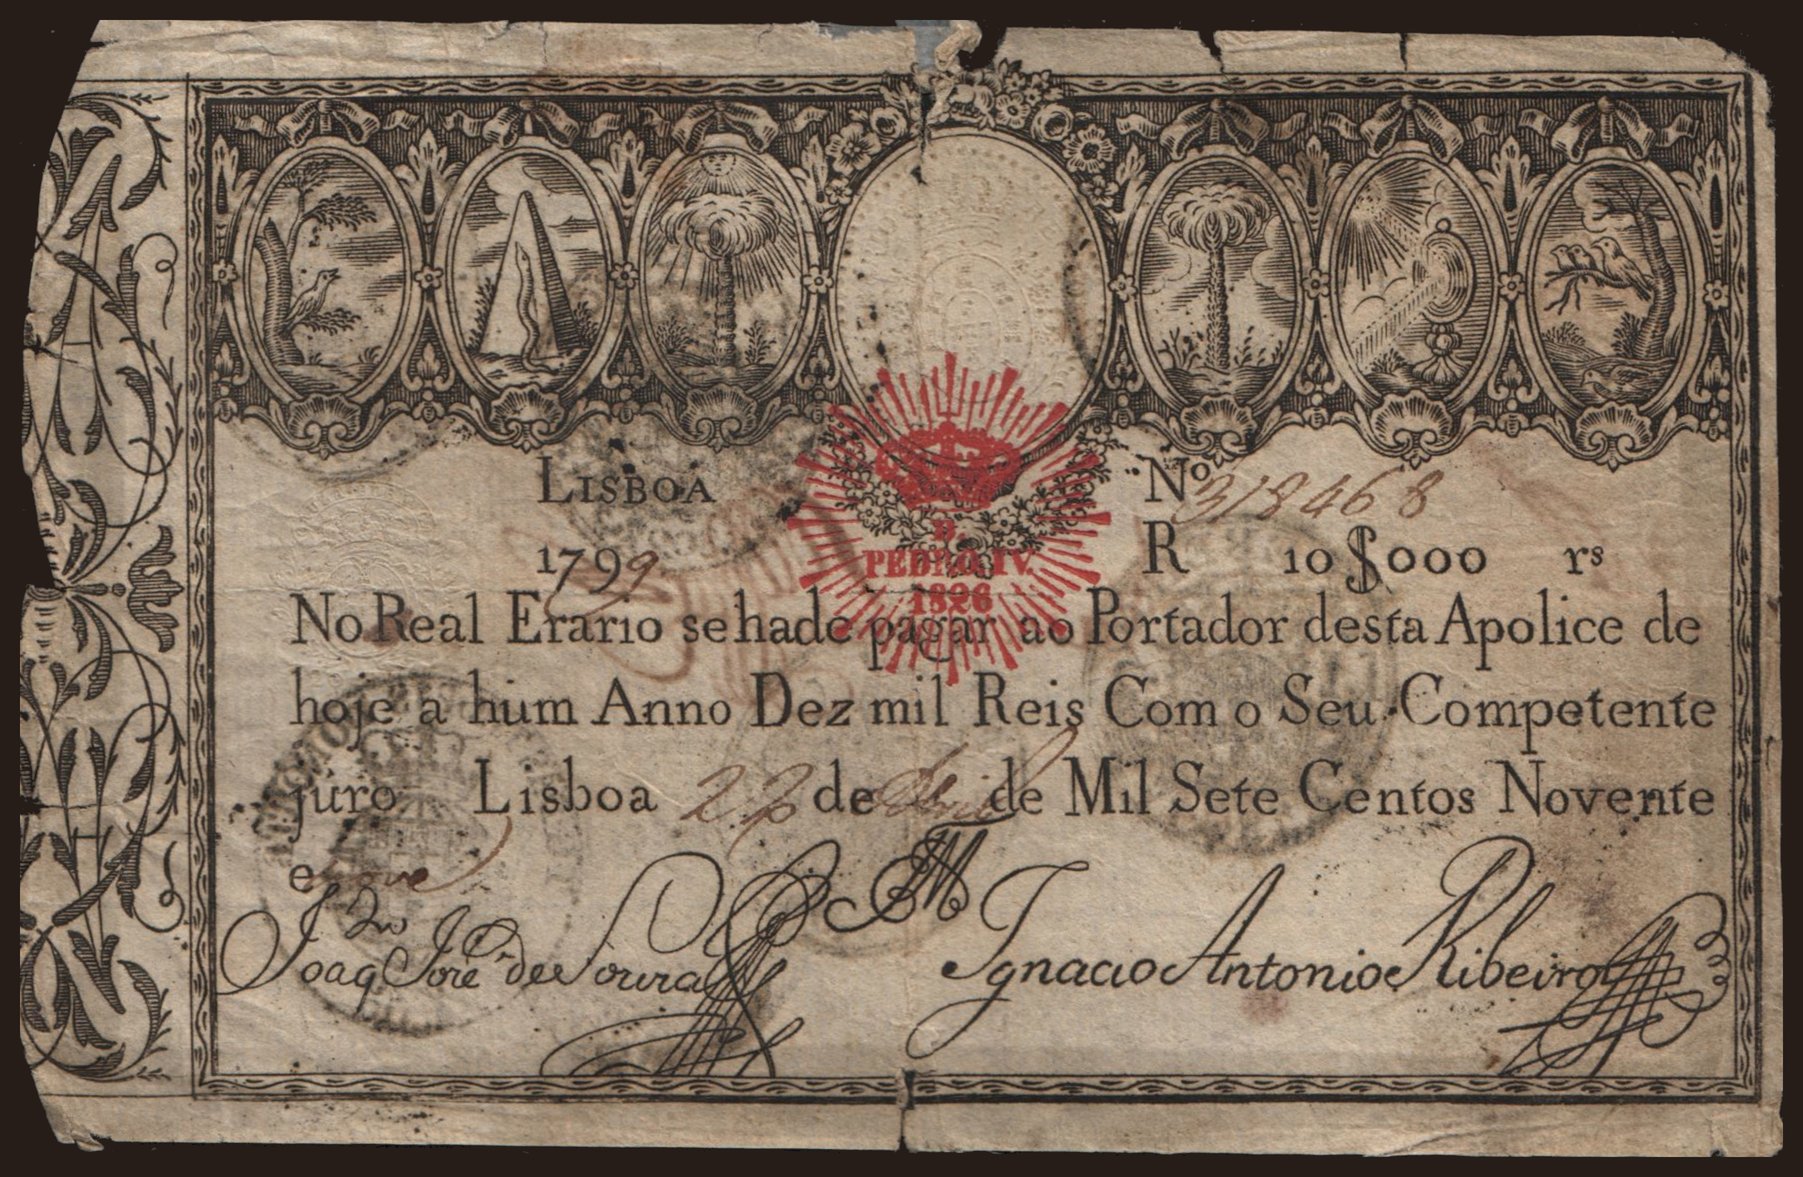 LISBOA
Nº 318468
1799
R 10$000 rs
D.
PEDRO IV.
1826
No Real Erario se hade pagar ao Portador desta Apolice de
hoje a hum Anno Dez mil Reis Com o Seu Competente
juro Lisboa 22 de Abril de Mil Sete Centos Novente
e nove
Joaqm José de Souza
Ignacio Antonio Ribeiro